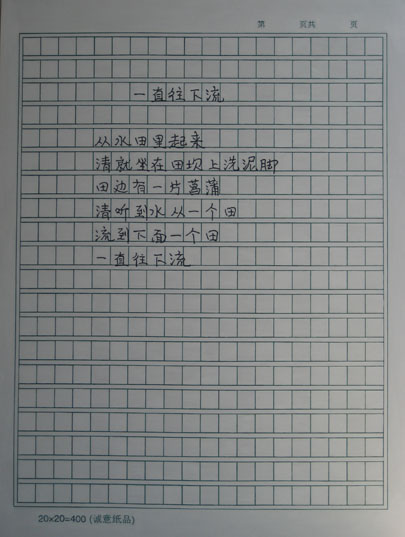 第 页共 页
一直往下流
从水田里起来
清就坐在田坝上洗泥脚
田边有一片菖蒲
清听到水从一个田
流到下面一个田
一直往下流
20×20=400 (诚意纸品)